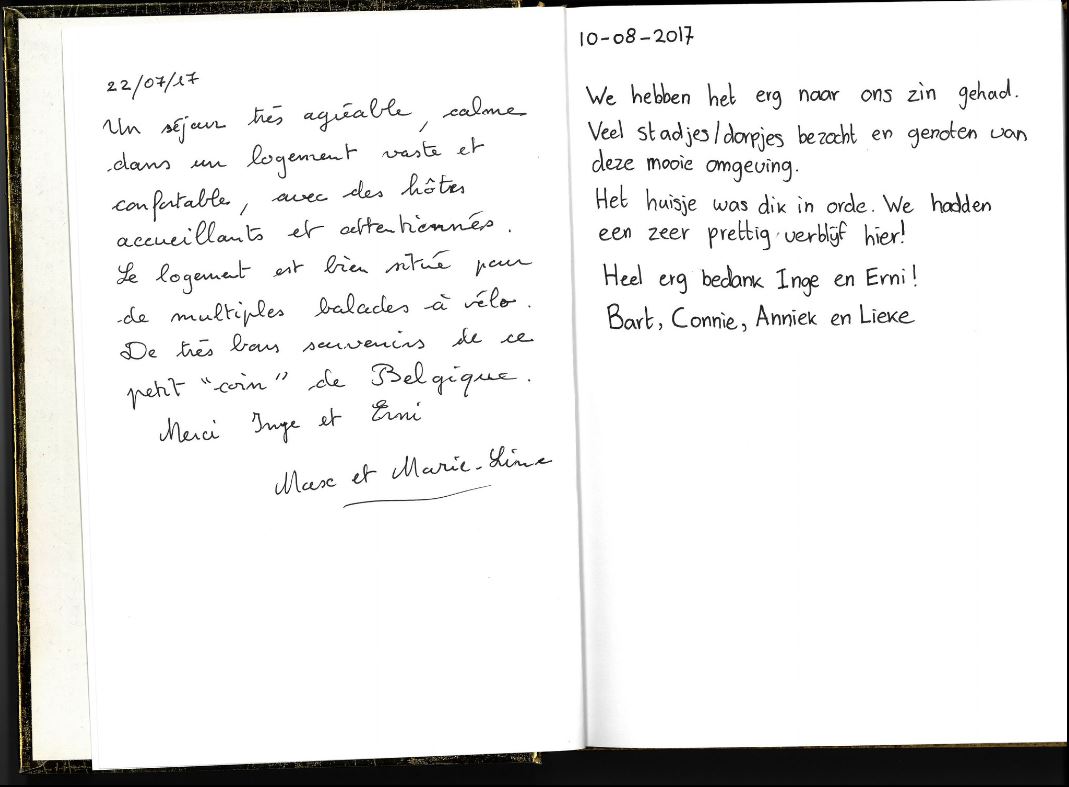 22/07/17
Un séjour très agréable, calme
dans un logement vaste et
confortable, avec des hôtes
accueillants et attentionnés.
Le logement est bien situé pour
de multiples balades à vélo.
De très bons souvenirs de ce
petit "coin" de Belgique.
Merci Inge et Erni
Max et Marie-Line
10-08-2017
We hebben het erg naar ons zin gehad.
Veel stadjes/dorpjes bezocht en genoten van
deze mooie omgeving.
Het huisje was dik in orde. We hadden
een zeer prettig verblijf hier!
Heel erg bedank Inge en Erni!
Bart, Connie, Anniek en Lieke